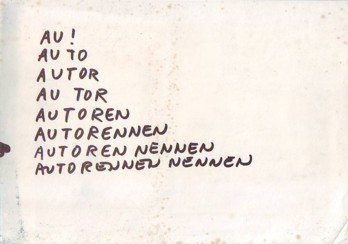 AU!
AUTO
AUTOR
AU TOR
AUTOREN
AUTORENNEN
AUTOREN NENNEN
AUTORENNEN NENNEN